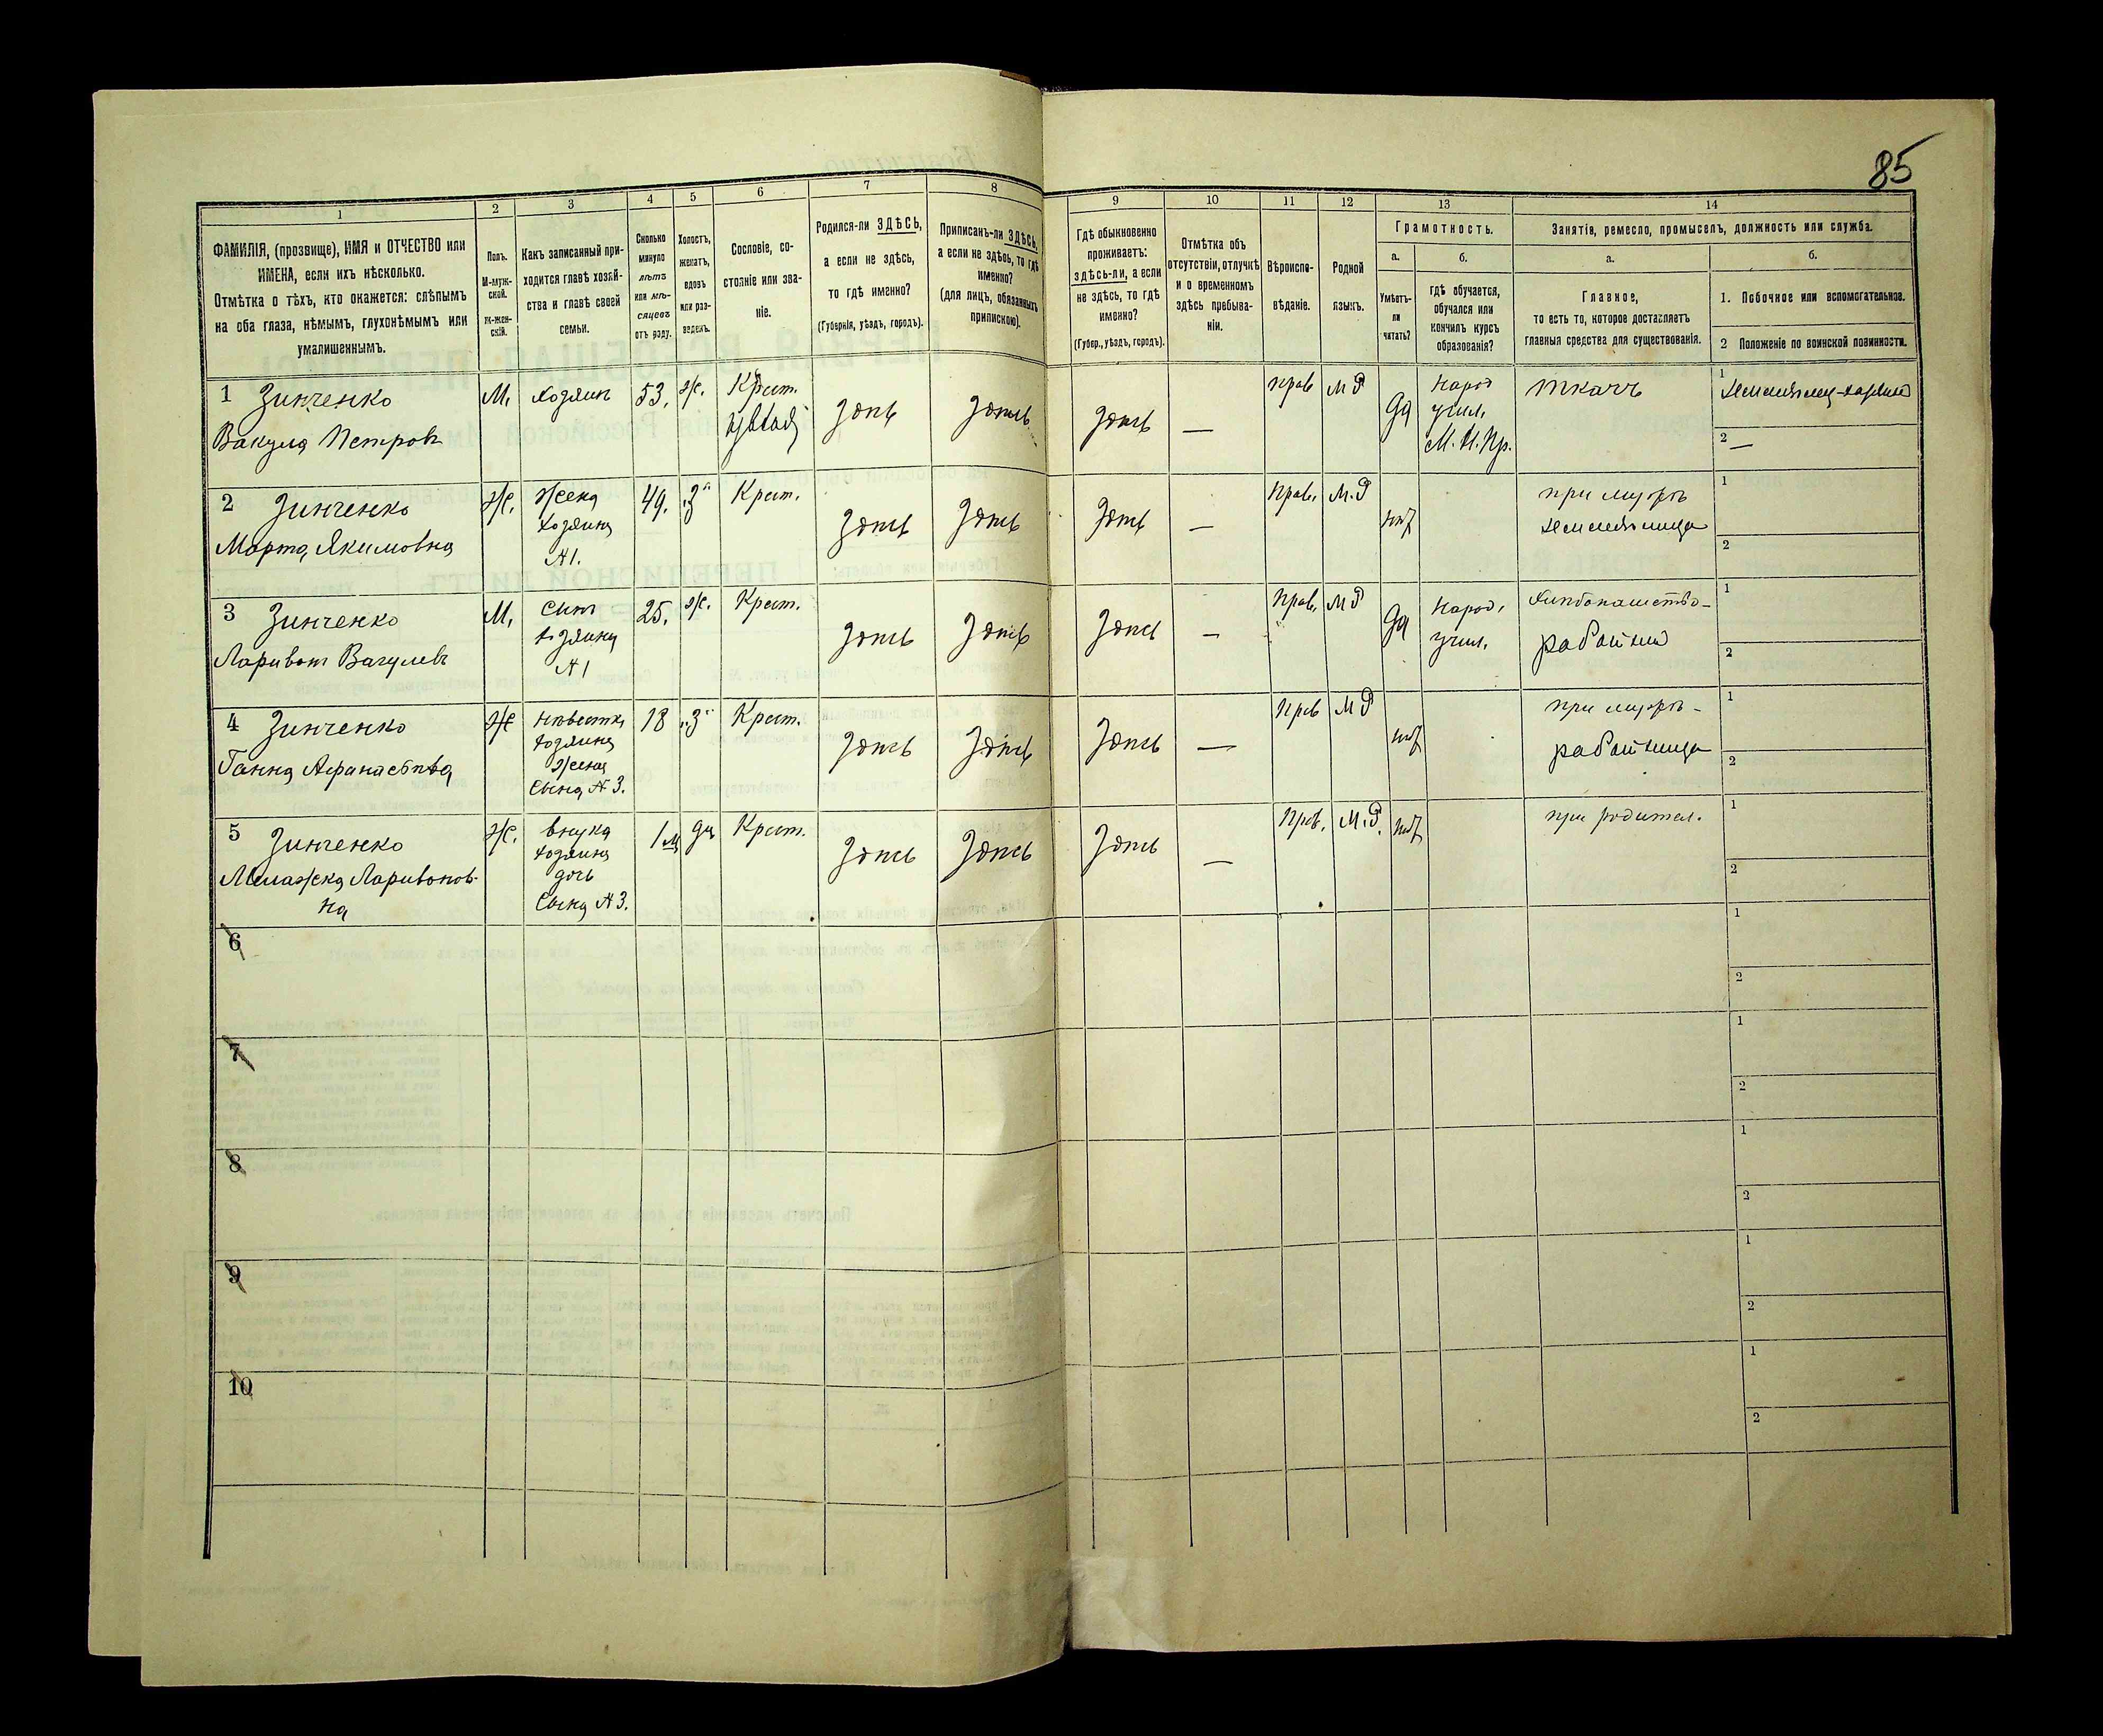 85
1
2
3
4
5
6
7
8
9
10
11
12
13
14
ФАМИЛІЯ, (прозвище), ИМЯ и ОТЧЕСТВО или
ИМЕНА, если ихъ нѣсколько.
Отмѣтка о тѣхъ, кто окажется: слѣпымъ
на оба глаза, нѣмымъ, глухонѣмымъ или
умалишеннымъ.
Полъ.
М-муж-
ской.
ж-жен-
скій.
Какъ записанный при-
ходится главѣ хозяй-
ства и главѣ своей
семьи.
Сколько
минуло
лѣтъ
или мѣ-
сяцевъ
отъ роду.
Холостъ,
женатъ,
вдовъ
или раз-
веденъ.
Сословіе, со-
стояніе или зва-
ніе.
Родился-ли ЗДѢСЬ,
а если не здѣсь,
то гдѣ именно?
(Губернія, уѣздъ, городъ).
Приписанъ-ли ЗДѢСЬ,
а если не здѣсь, то гдѣ
именно?
(для лицъ, обязанныхъ
припискою).
Гдѣ обыкновенно
проживаетъ:
здѣсь-ли, а если
не здѣсь, то гдѣ
именно?
(Губер., уѣздъ, городъ).
Отмѣтка объ
отсутствіи, отлучкѣ
и о временномъ
здѣсь пребыва-
ніи.
Вѣроиспо-
вѣданіе.
Родной
языкъ.
Грамотность.
а.
Умѣетъ-
ли
читать?
б.
гдѣ обучается,
обучался или
кончилъ курсъ
образованія?
Занятія, ремесло, промыселъ, должность или служба.
а.
Главное,
то есть то, которое доставляетъ
главныя средства для существованія.
б.
1. Побочное или вспомогательное.
2 Положеніе по воинской повинности.
1 Зинченко
Вакула Петровъ
М.
хозяин
53.
ж.
Крест.
здѣсь
здѣсь
здѣсь
—
прав
М Р
да
Народ
учил.
М. Н. Пр.
ткачъ
1
2 —
2 Зинченко
Марта Якимовна
Ж.
жена
хозяина
№1.
49.
„З"
Крест.
здѣсь
здѣсь
здѣсь
—
Прав.
М.Р
нѣт
при мужѣ
1
2
3 Зинченко
Ларивон Вакулевъ
М.
сын
хозяина
№1
25.
ж.
Крест.
здѣсь
здѣсь
здѣсь
—
Прав.
М Р
да
Народ.
учил.
Хлѣбопашество-
работник
1
2
4 Зинченко
Ганна Афанасьева
Ж
невѣстка
хозяина
жена
сына №3.
18
„З"
Крест.
здѣсь
здѣсь
здѣсь
—
Прв
М Р
нѣт
при мужѣ -
работница
1
2
5 Зинченко
Меланжка Ларивонов-
на
Ж.
внука
хозяина
дочь
сына №3.
1 м
дц
Крест.
здѣсь
здѣсь
здѣсь
—
Прв.
М.Р.
нѣт
при родител.
1
2
6
1
2
7
1
2
8
1
2
9
1
2
10
1
2